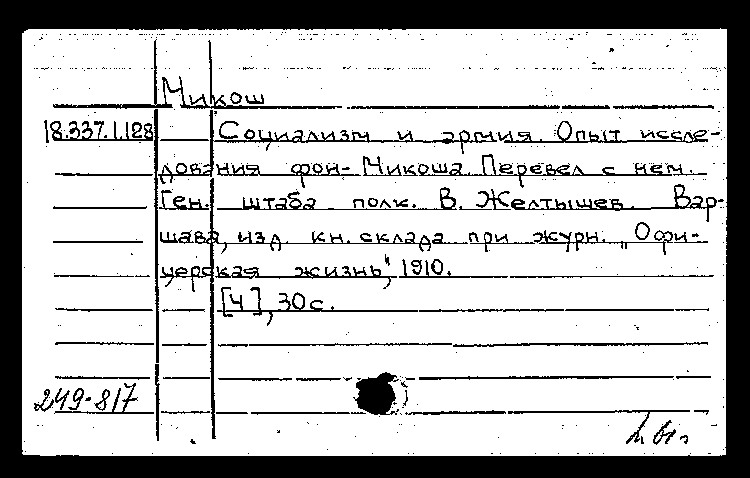 Микош
18.337.1.128 Социализм и армия. Опыт иссле-
дования фон-Микоша. Перевел с нем.
Ген. штаба полк. В. Желтышев. Вар-
шава, изд. кн. склада при журн. „Офи-
церская жизнь", 1910.
[4], 30 с.
249-817